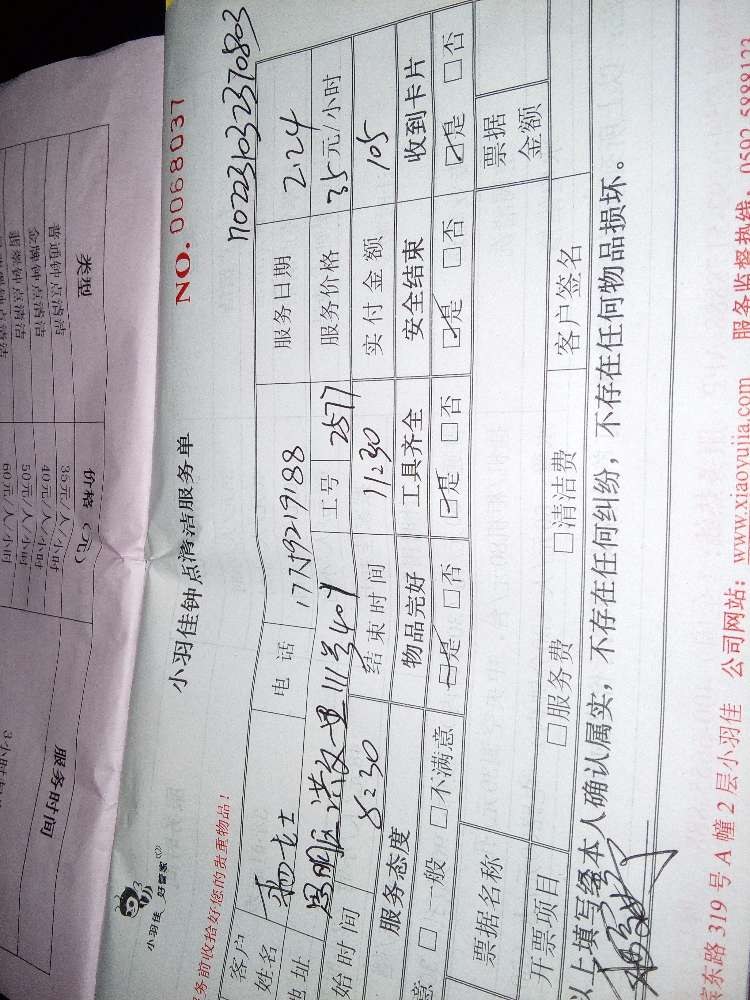 类型 价格（元） 服务时间
普通钟点清洁 35元/人/小时
金牌钟点清洁 40元/人/小时
翡翠钟点清洁 50元/人/小时
60元/人/小时
小羽佳 好管家
小羽佳钟点清洁服务单 NO.0068037
务前收拾好您的贵重物品！
客户姓名 电话 服务日期 2.24
地址 思明区洪文里111号407 工号 2577 服务价格 35元/小时
始时间 8:30 结束时间 11:30 实付金额 105
服务态度 物品完好 工具齐全 安全结束 收到卡片
意 □一般 □不满意 ☑是 □否 ☑是 □否 ☑是 □否 ☑是 □否
票据名称 票据金额
开票项目 □服务费 □清洁费 客户签名
以上填写经本人确认属实，不存在任何纠纷，不存在任何物品损坏。
滨东路319号A幢2层小羽佳 公司网站：www.xiaoyujia.com 服务监督热线：0592-5888123